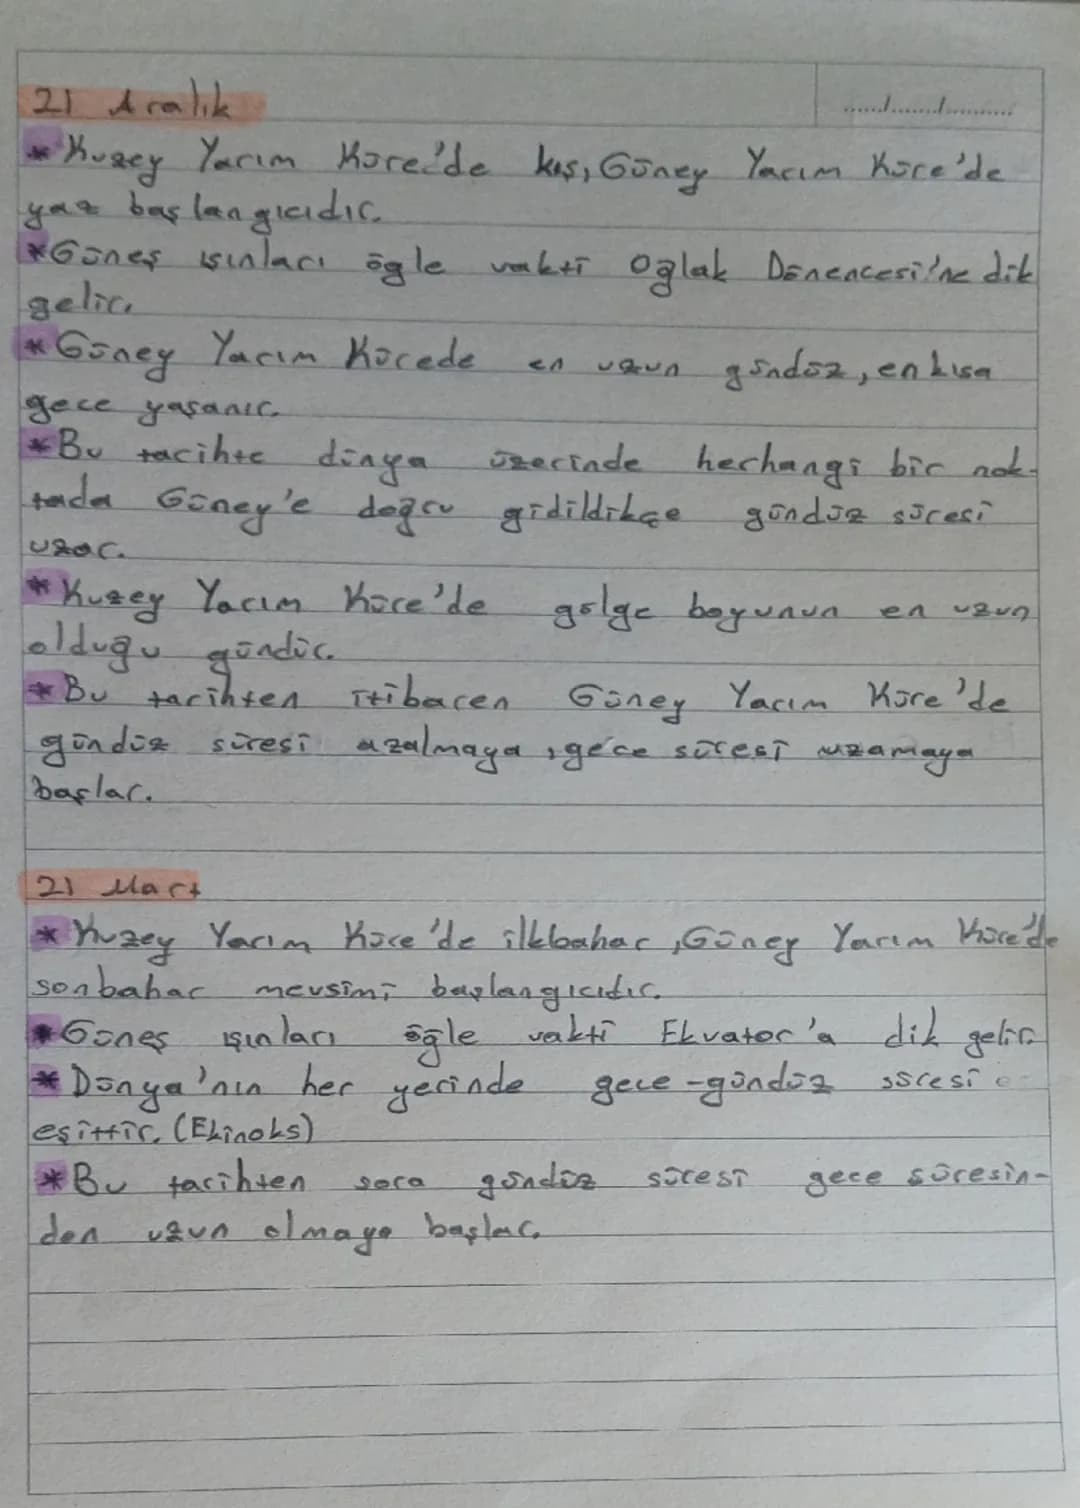 21 Aralık
...../...../.....
* Kuzey Yarım Küre'de kış, Güney Yarım Küre'de
yaz başlangıcıdır.
* Güneş ışınları öğle vakti Oğlak Dönencesi'ne dik
gelir.
* Güney Yarım Kürede en uzun gündüz, en kısa
gece yaşanır.
* Bu tarihte dünya üzerinde herhangi bir nok-
tada Güney'e doğru gidildikçe gündüz süresi
uzar.
* Kuzey Yarım Küre'de gölge boyunun en uzun
olduğu gündür.
* Bu tarihten itibaren Güney Yarım Küre'de
gündüz süresi azalmaya, gece süresi uzamaya
başlar.
21 Mart
* Kuzey Yarım Küre'de ilkbahar, Güney Yarım Küre'de
sonbahar mevsimi başlangıcıdır.
* Güneş ışınları öğle vakti Ekvator'a dik gelir.
* Dünya'nın her yerinde gece-gündüz süresi e
eşittir. (Ekinoks)
* Bu tarihten sora gündüz süresi gece süresin-
den uzun olmaya başlar.